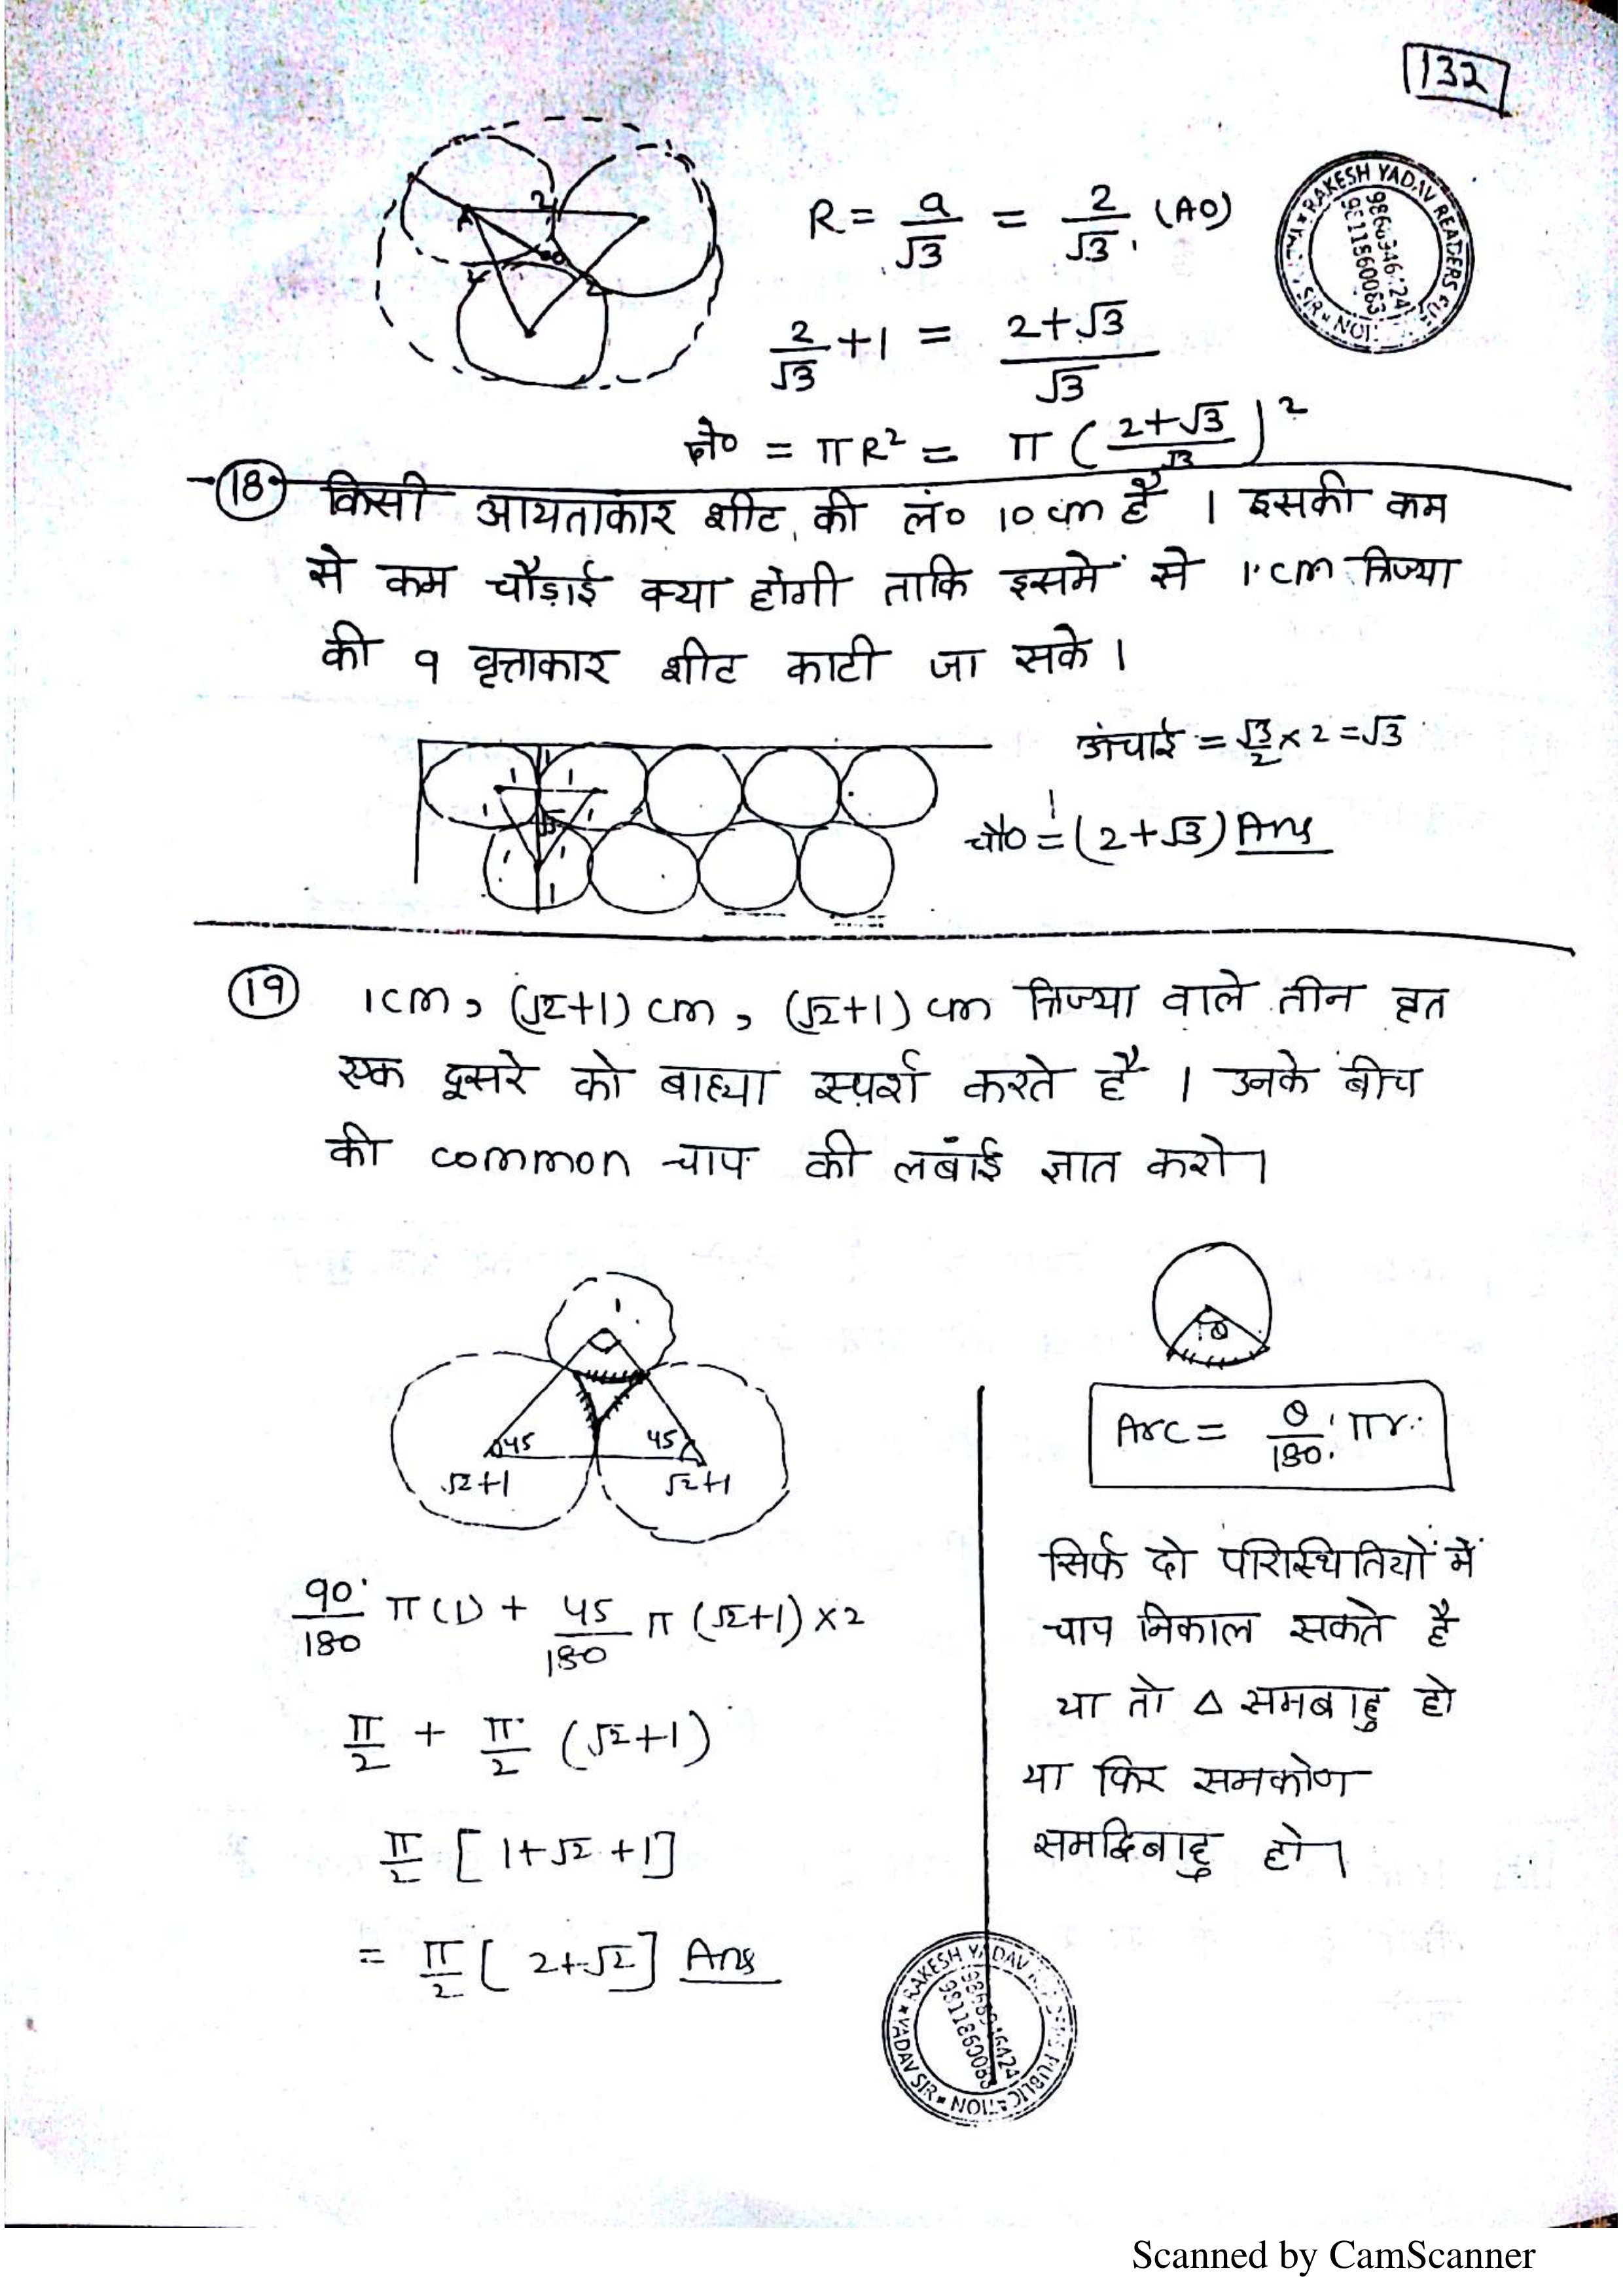 132
R = a/√3 = 2/√3 (AO)
2/√3 + 1 = (2+√3)/√3
क्षे० = πR² = π((2+√3)/√3)²
(18) किसी आयताकार शीट की लं० 10 cm है । इसकी कम
से कम चौड़ाई क्या होगी ताकि इसमें से 1 cm त्रिज्या
की 9 वृत्ताकार शीट काटी जा सके ।
ऊंचाई = √3/2 × 2 = √3
चौ० = (2+√3) Ans
(19) 1cm, (√2+1) cm, (√2+1) cm त्रिज्या वाले तीन वृत
एक दूसरे को बाह्या स्पर्श करते है । उनके बीच
की common चाप की लंबाई ज्ञात करो।
1
45 45
√2+1 √2+1
θ
Arc = θ/180 πr
90/180 π(1) + 45/180 π (√2+1) × 2
π/2 + π/2 (√2+1)
π/2 [1+√2+1]
= π/2 [2+√2] Ans
सिर्फ दो परिस्थितियों में
चाप निकाल सकते है
या तो Δ समबाहु हो
या फिर समकोण
समद्विबाहु हो।
RAKESH YADAV READERS PUBLICATION
YADAV SIR
Scanned by CamScanner